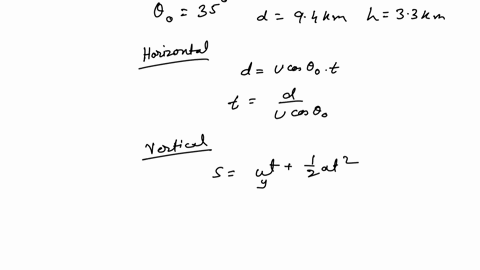 θ₀ = 35° d = 9.4 km h = 3.3 km
Horizontal
d = u cos θ₀ · t
t = d / u cos θ₀
Vertical
s = u_y t + 1/2 at²